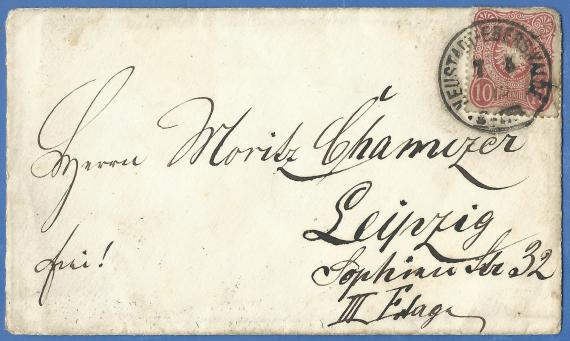 NEUSTADT-EBERSWALDE
10
Herrn Moritz Chamizer
Leipzig
frei!
Sophien Str 32
III Etage